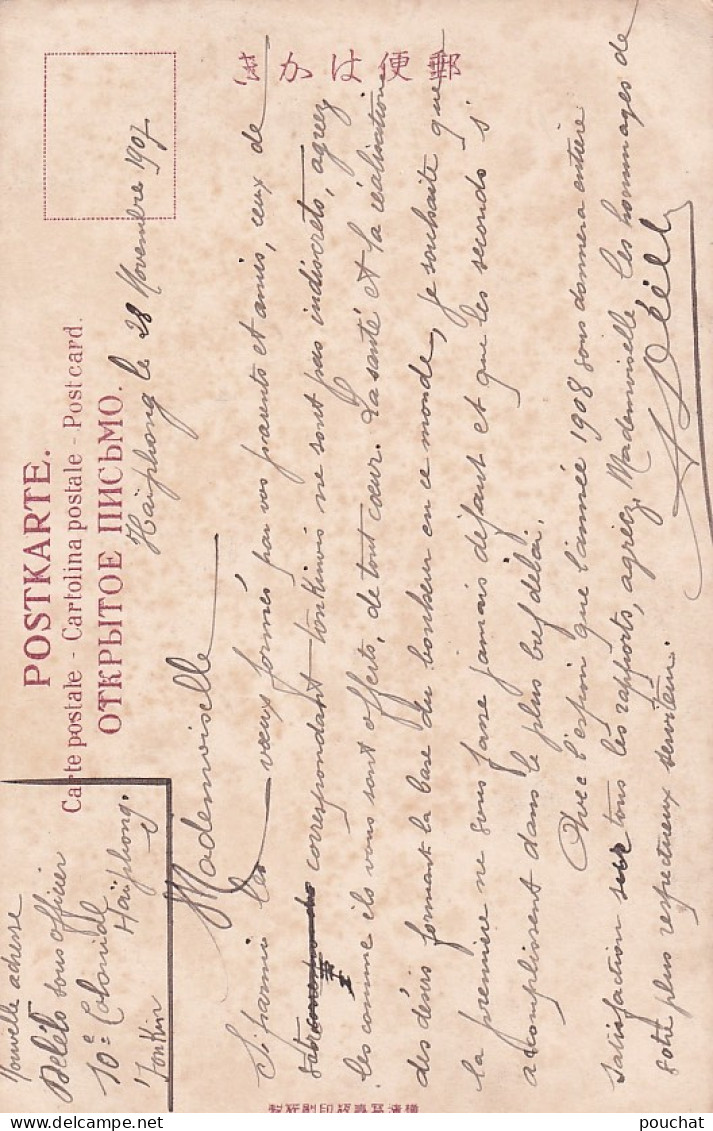 郵便はかき
POSTKARTE.
Carte postale - Cartolina postale - Post card.
ОТКРЫТОЕ ПИСЬМО.
Haïphong le 28 Novembre 1907
Mademoiselle
Si parmi les vœux formés par vos parents et amis, ceux de
votre correspondant tonkinois ne sont pas indiscrets, agréez
les comme ils vous sont offerts, de tout cœur. La santé et la réalisation
des désirs formant la base du bonheur en ce monde, je souhaite que
la première ne vous fasse jamais défaut et que les seconds s'
accomplissent dans le plus bref délai.
Avec l'espoir que l'année 1908 vous donnera entière
satisfaction sur tous les rapports, agréez, Mademoiselle les hommages de
votre plus respectueux serviteur.
Nouvelle adresse
sous officier
10e Coloniale
Haïphong.
Tonkin
pouchat